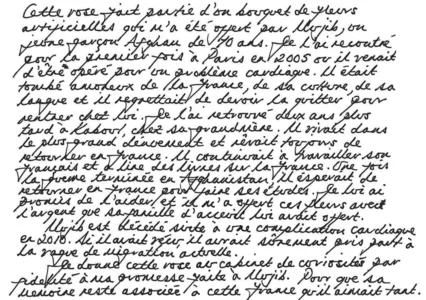 Cette rose fait partie d'un bouquet de fleurs
artificielles qui m'a été offert par Mojib, un
jeune garçon Afghan de 10 ans. Je l'ai recontré
pour la première fois à Paris en 2005 où il venait
d'être opéré pour un problème cardiaque. Il était
tombé amoureux de la France, de sa culture, de sa
langue et il regrettait de devoir la quitter pour
rentrer chez lui. Je l'ai retrouvé deux ans plus
tard à Kaboul, chez sa grand-mère. Il vivait dans
le plus grand dénuement et rêvait toujours de
retourner en France. Il continuait à travailler son
français et à lire des livres sur la France. Une fois
la guerre terminée en Afghanistan il espérait de
retourner en France pour faire ses études. Je lui ai
promis de l'aider, et il m'a offert ces fleurs avec
l'argent que sa famille d'accueil lui avait offert.
Mojib est décédé suite à une complication cardiaque
en 2010. Si il avait vécu, il aurait sûrement pris part à
la vague de migration actuelle.
Je donne cette rose au cabinet de curiosités par
fidélité à ma promesse faite à Mojib. Pour que sa
mémoire reste associée à cette France qu'il aimait tant.